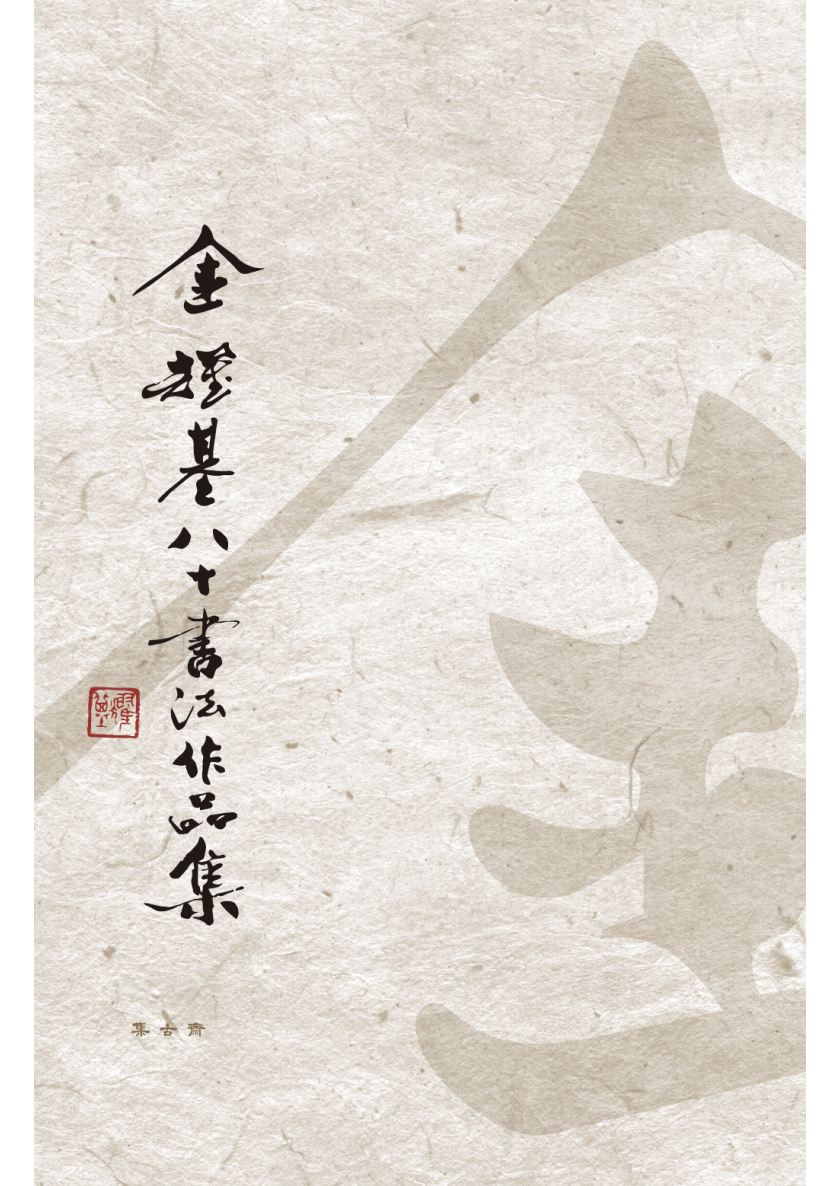 金耀基八十書法作品集
耀基
集古齋